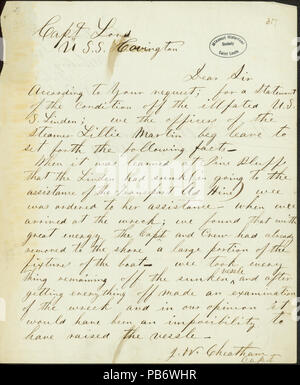 Capt Lord
U.S.S. Covington
Missouri Historical
Society
Saint Louis
Dear Sir
According to Your request; for a Statement
of the Condition off the illfated U.S.
S. Linden; we the officers of the
Steamer Lillie Martin beg leave to
set forth the following facts
When it was learned at Pine Bluffs
that the Linden had sunk (in going to the
assistance of the transport Ad Hine) wee
was ordered to her assistance - when we
arrived at the wreck; we found that with
great energy the Capt and Crew had already
removed to the shore a large portion of the
fixture of the boat - wee took every
thing remaining off the sunken vessle and after
getting everything off made an examination
of the wreck and in our opinion it
would have been an imposibility to
have raised the vessle.
J. W. Cheatham
Capt
alamy
Image ID: PB6WHR
www.alamy.com